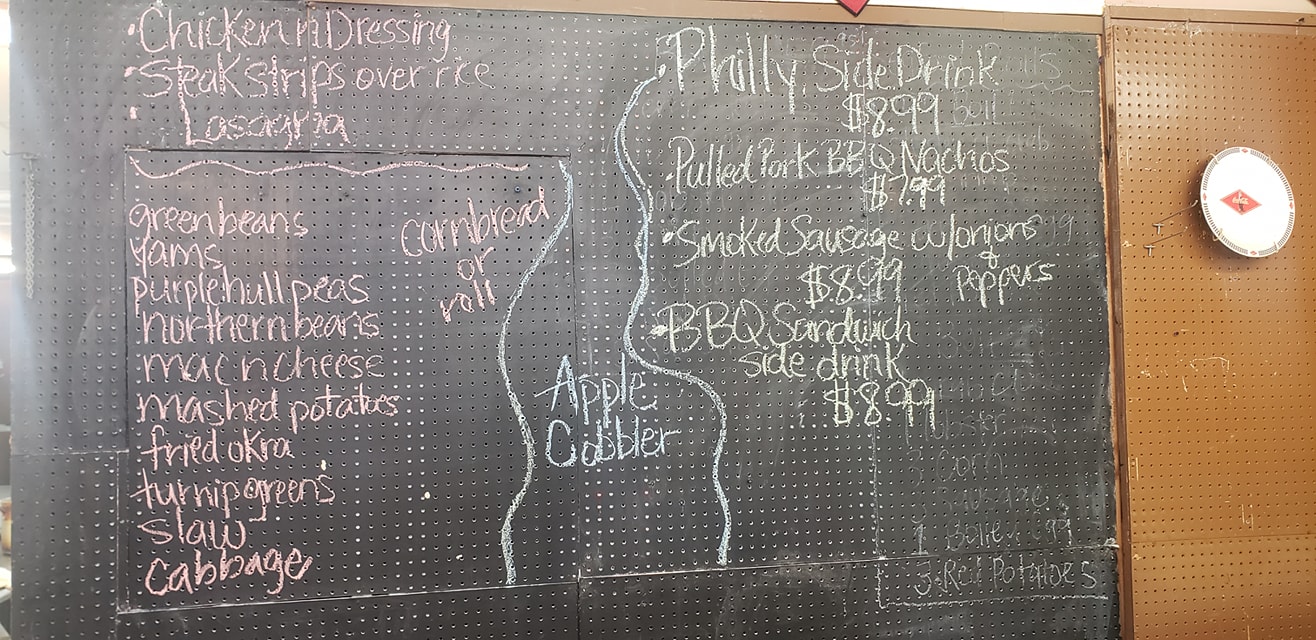 •Chicken n Dressing
•Steak strips over rice
• Lasagna
green beans
yams
purple hull peas
northern beans
mac n cheese
mashed potatoes
fried okra
turnip greens
slaw
cabbage
cornbread
or
roll
Apple
Cobbler
•Philly, Side Drink
$8.99
•Pulled Pork BBQ Nachos
$7.99
•Smoked Sausage w/onions
&
peppers
$8.99
•BBQ Sandwich
side drink
$8.99
Corn
3-Red Potatoes
Coca-Cola